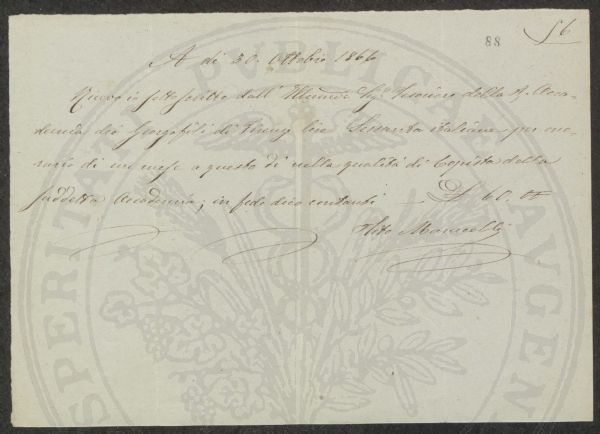 88
56
A dì 30. Ottobre 1866
Ricevo io sottoscritto dall' Illmo Sig. Tesoriere della R. Acca-
demia dei Georgofili di Firenze Lire Sessanta italiane, per ono-
rario di un mese a questo dì nella qualità di Copista della
suddetta Accademia; in fede dico contanti L 60.
PROSPERITATI PUBLICAE AUGENDAE